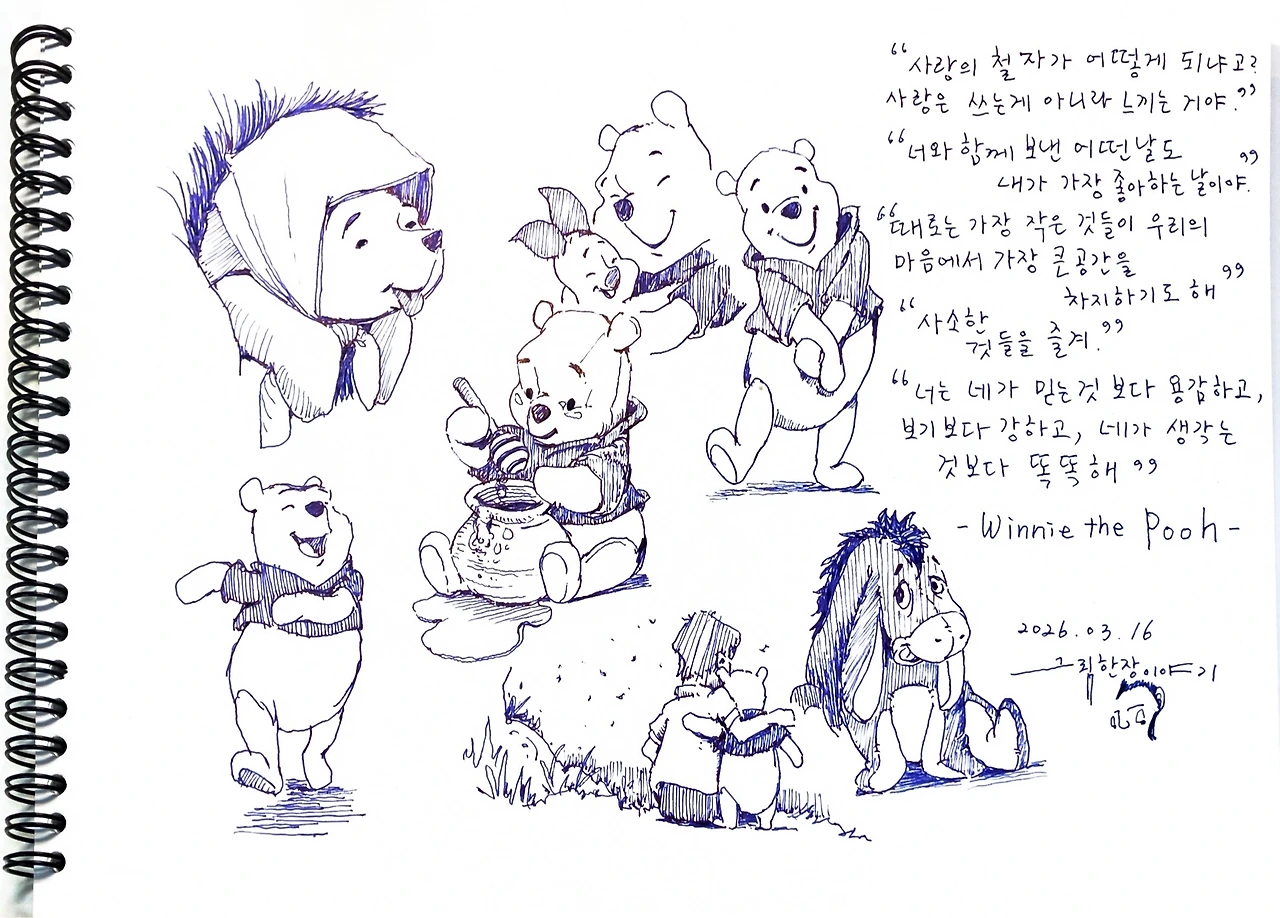 “사랑의 철자가 어떻게 되냐고?
사랑은 쓰는게 아니라 느끼는 거야.”
“너와 함께 보낸 어떤날도
내가 가장 좋아하는 날이야.”
“때로는 가장 작은 것들이 우리의
마음에서 가장 큰공간을
차지하기도 해”
“사소한
것들을 즐겨.”
“너는 네가 믿는것 보다 용감하고,
보기보다 강하고, 네가 생각는
것보다 똑똑해”
- Winnie the Pooh -
2026.03.16
그림한장이야기